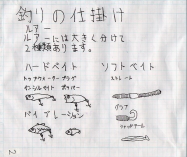 釣りの仕掛け
ルアー
ルアーには大きく分けて
2種類あります。
ハードベイト ソフトベイト
トップウォータープラグ ストレート
ペンシルベイト ポッパー
バイブレーション
イワナ
シャッドテール
2